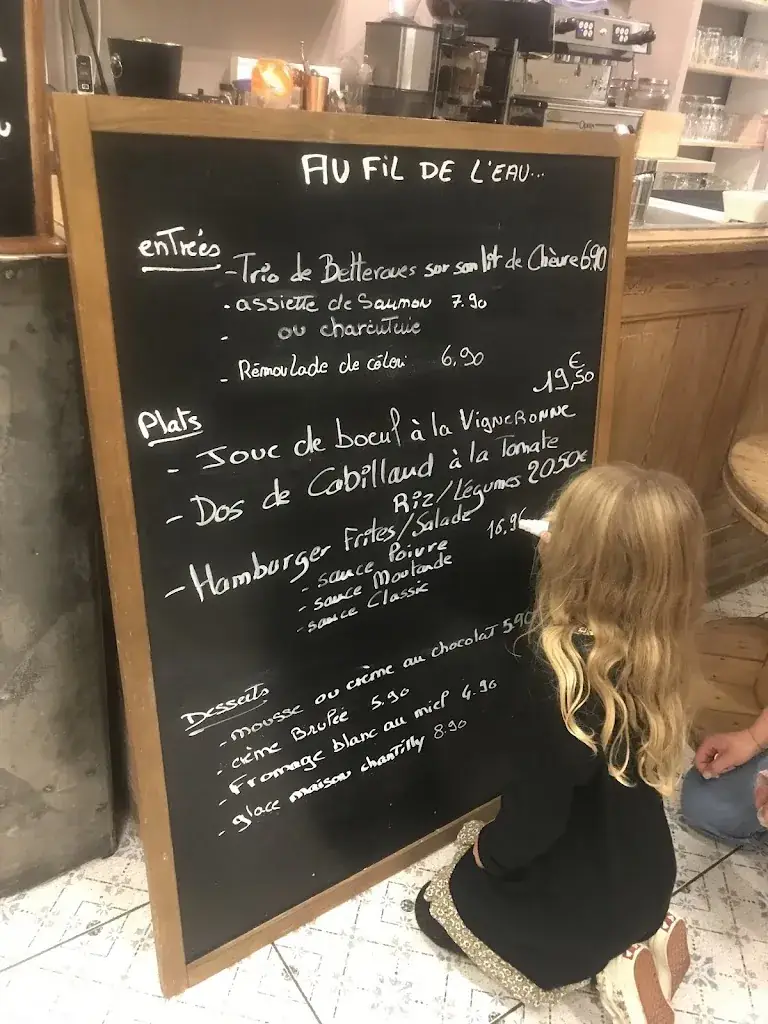 AU FIL DE L'EAU...
entrées
- Trio de Betteraves sur son lit de Chèvre 6.90
- assiette de Saumon 7.90
- ou charcuterie
- Rémoulade de céleri 6,90
Plats
19,50 €
- Joue de boeuf à la VIGNERONNE
- Dos de Cabillaud à la Tomate
Riz/Légumes 20.50€
- Hamburger Frites/Salade 16.9
- sauce Poivre
- sauce Moutarde
- sauce Classic
Desserts
- mousse ou crème au chocolat 5.90
- crème Brulée 5.90
- Fromage blanc au miel 4.90
- glace maison chantilly 8.90